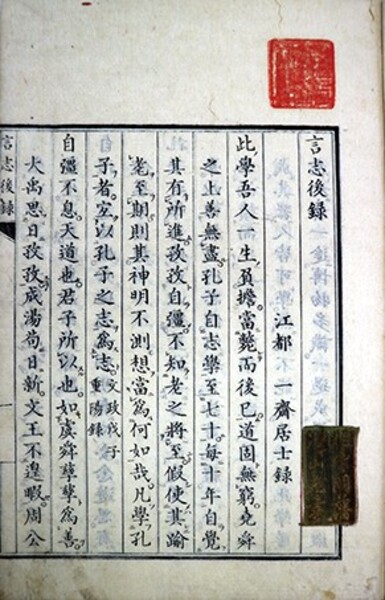 言志後録
江都 一齋居士録
此學吾人一生負擔當斃而後已道固無窮堯舜
之上善無盡孔子自志學至七十每十年自覺
其有所進孜孜自彊不知老之將至假使其踰
耄至期則其神明不測想當爲何如哉凡學孔
子者宜以孔子之志爲志文政戊子重陽録
自彊不息天道也君子所以也如虞舜孳孳爲善
大禹思日孜孜成湯苟日新文王不遑暇周公
言志後録